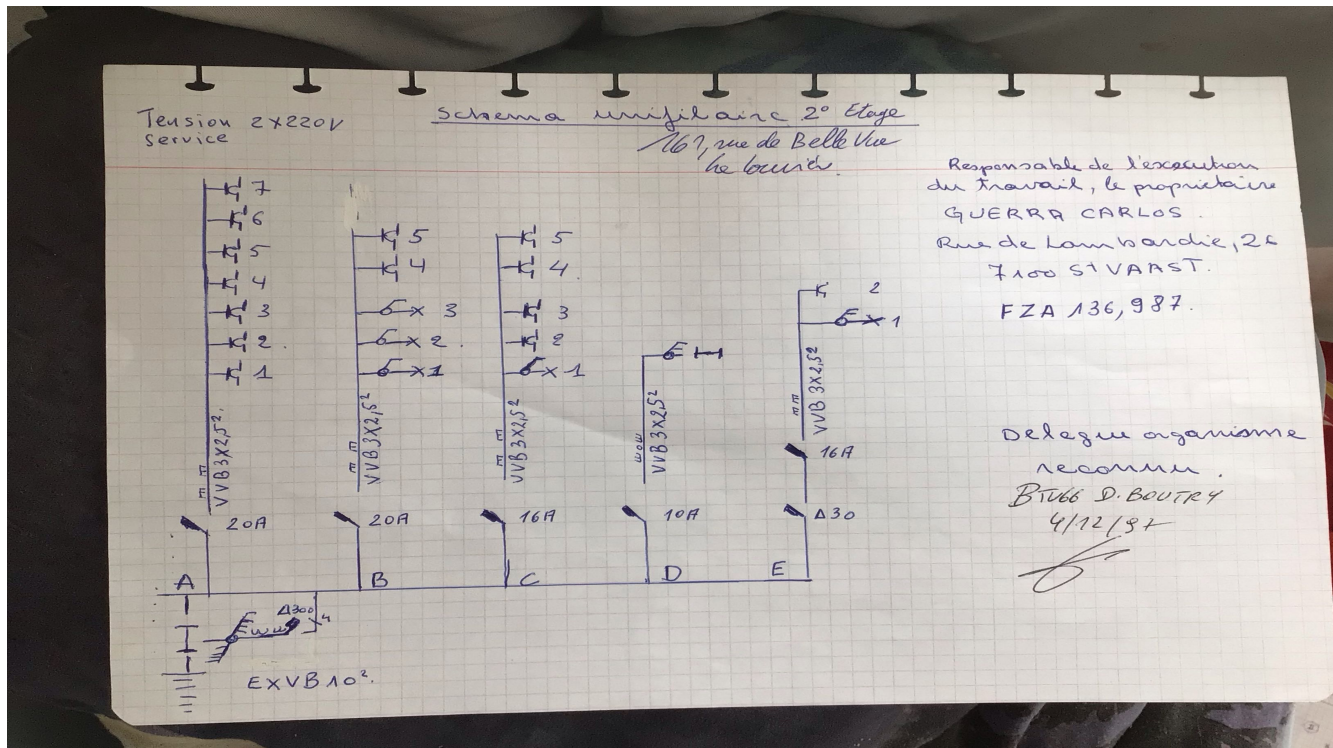 Tension 2x220V
Service
Schema unifilaire 2° Etage
rue de Belle Vue
Responsable de l'execution
du travail, le proprietaire
GUERRA CARLOS.
Rue de Lombardie, 26
7100 St VAAST.
FZA 136,987.
Delegue organisme
reconnu.
D. BOUTRY
4/12/97
7
6
5
4
3
2
1
VVB 3x2,5²
20A
A
5
4
x 3
x 2
x 1
VVB 3x2,5²
20A
B
5
4
3
2
x 1
VVB 3x2,5²
16A
C
VVB 3x2,5²
10A
D
2
x 1
VVB 3x2,5²
16A
Δ30
E
Δ300
4
EXVB 10².